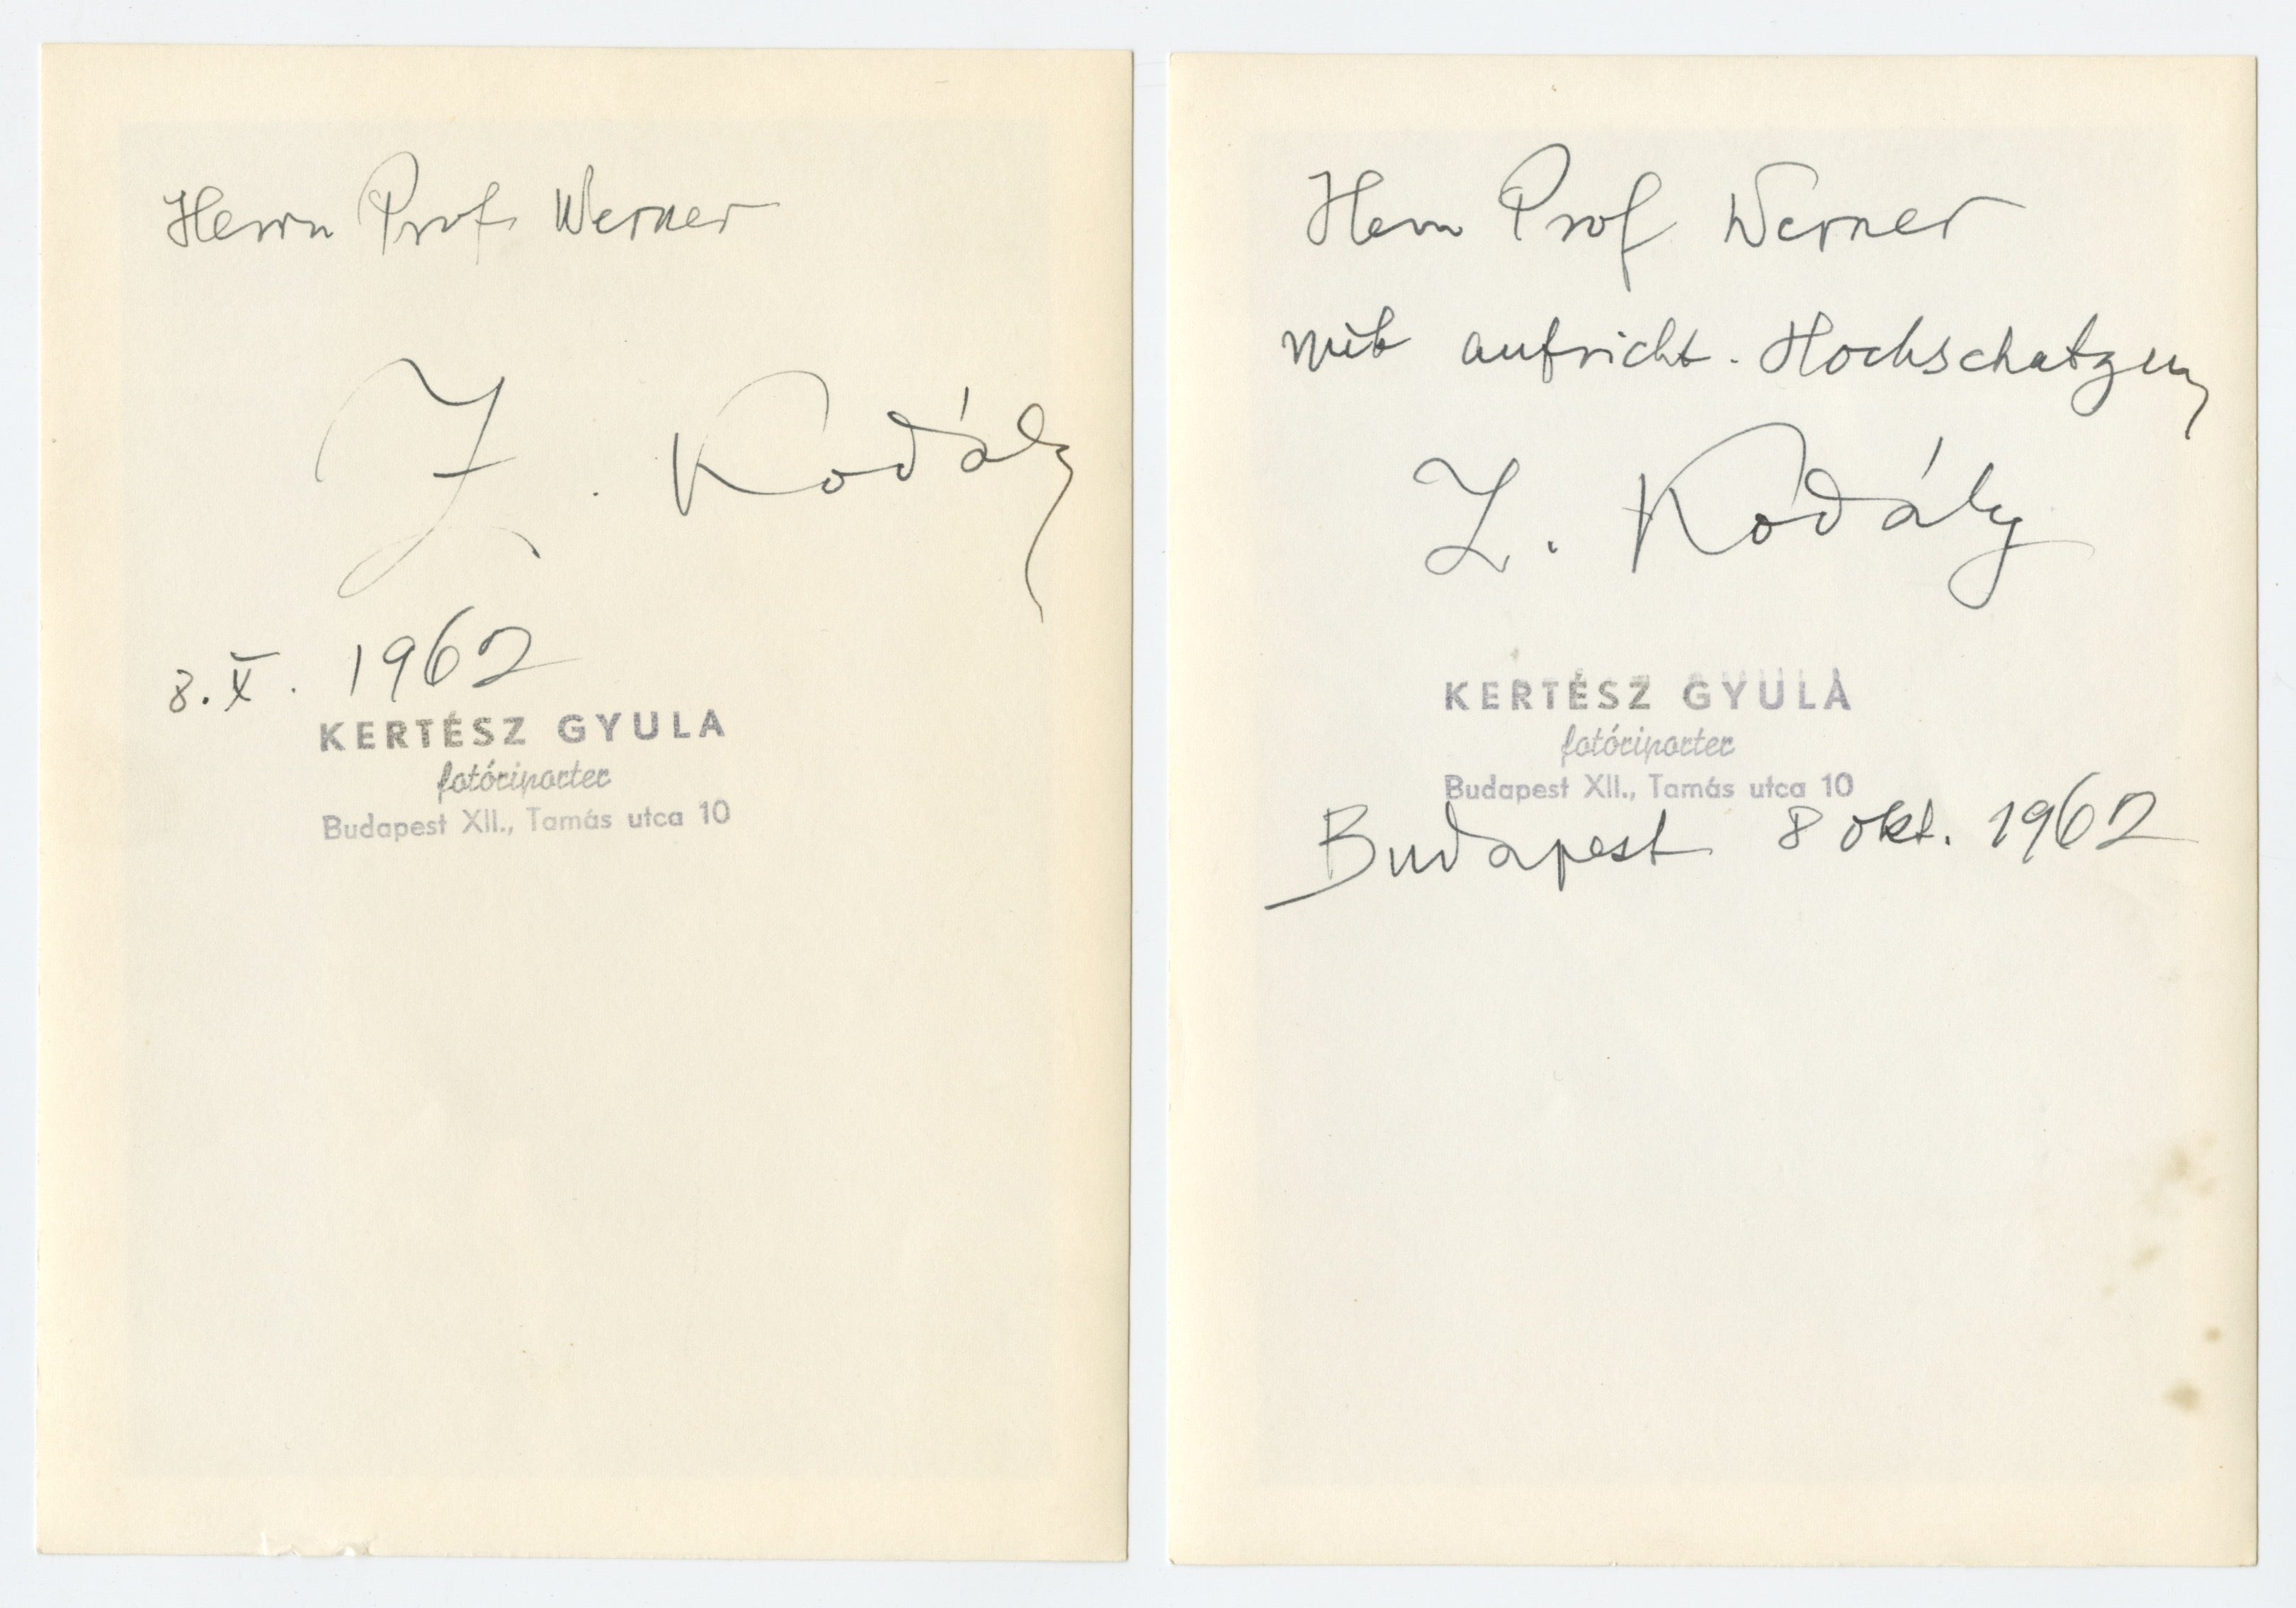 Herrn Prof. Werner
Z. Kodály
8. X. 1962
KERTÉSZ GYULA
fotóriporter
Budapest XII., Tamás utca 10
Herrn Prof Werner
mit aufricht. Hochschatzung
Z. Kodály
KERTÉSZ GYULA
fotóriporter
Budapest XII., Tamás utca 10
Budapest 8 okt. 1962